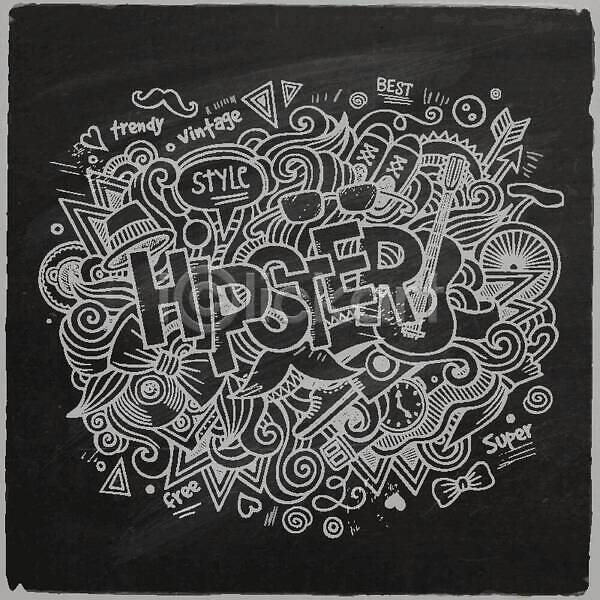 BEST
trendy
vintage
STYLE
HIPSTER
Super
free